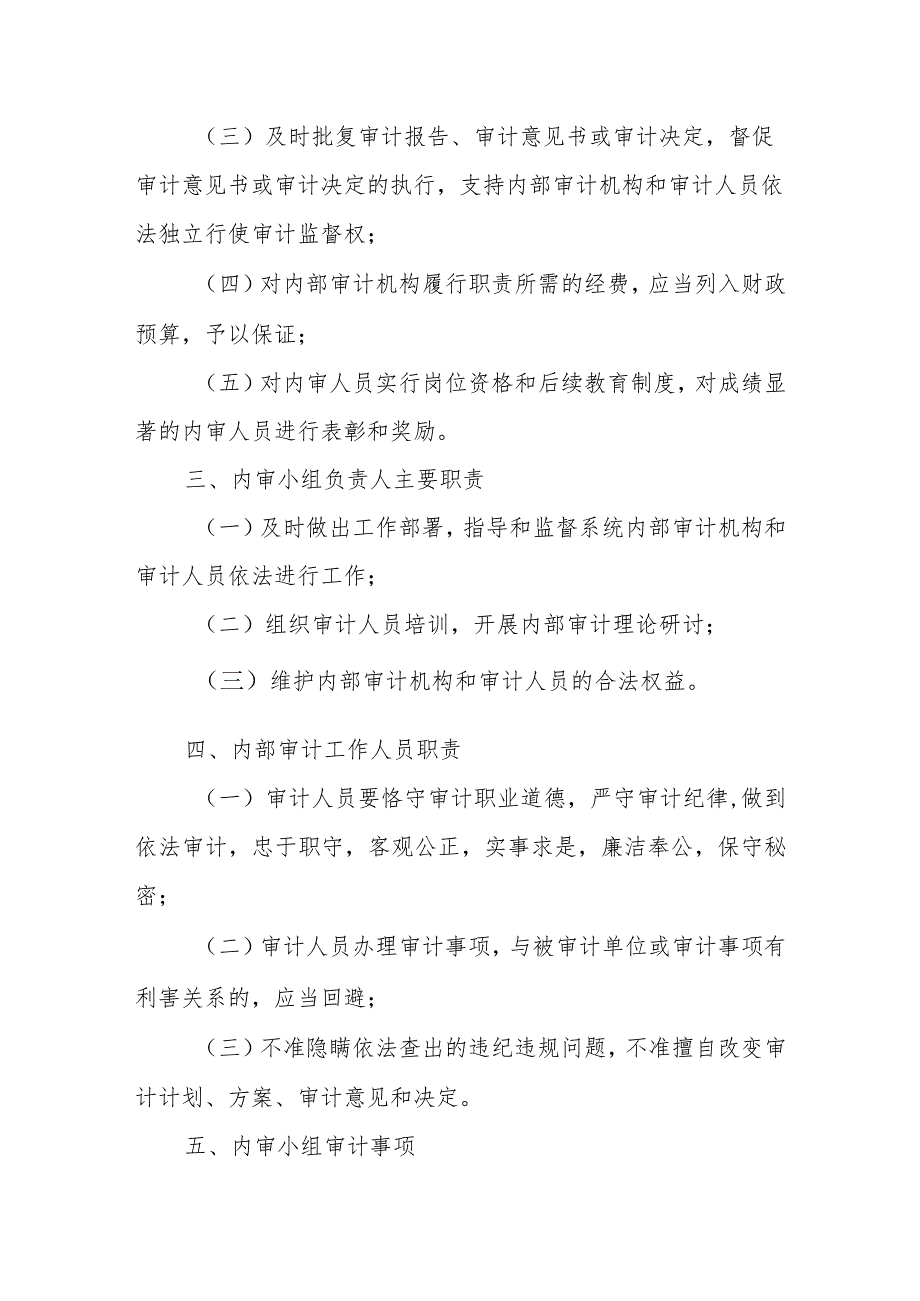 （三）及时批复审计报告、审计意见书或审计决定，督促
审计意见书或审计决定的执行，支持内部审计机构和审计人员依
法独立行使审计监督权；
（四）对内部审计机构履行职责所需的经费，应当列入财政
预算，予以保证；
（五）对内审人员实行岗位资格和后续教育制度，对成绩显
著的内审人员进行表彰和奖励。
三、内审小组负责人主要职责
（一）及时做出工作部署，指导和监督系统内部审计机构和
审计人员依法进行工作；
（二）组织审计人员培训，开展内部审计理论研讨；
（三）维护内部审计机构和审计人员的合法权益。
四、内部审计工作人员职责
（一）审计人员要恪守审计职业道德，严守审计纪律,做到
依法审计，忠于职守，客观公正，实事求是，廉洁奉公，保守秘
密；
（二）审计人员办理审计事项，与被审计单位或审计事项有
利害关系的，应当回避；
（三）不准隐瞒依法查出的违纪违规问题，不准擅自改变审
计计划、方案、审计意见和决定。
五、内审小组审计事项